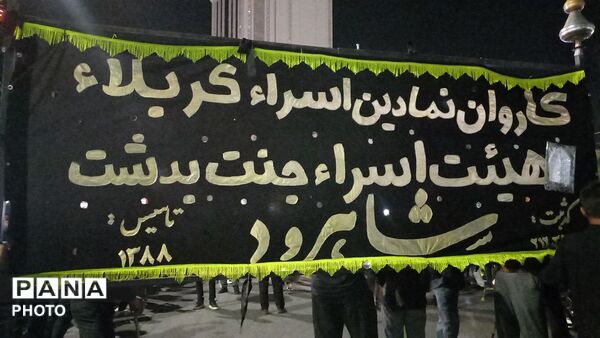 کاروان نمادین اسراء کربلاء
هیئت اسراء جنت بدشت
شاهرود
تاسیس:
۱۳۸۸
ثبت:
PANA
PHOTO